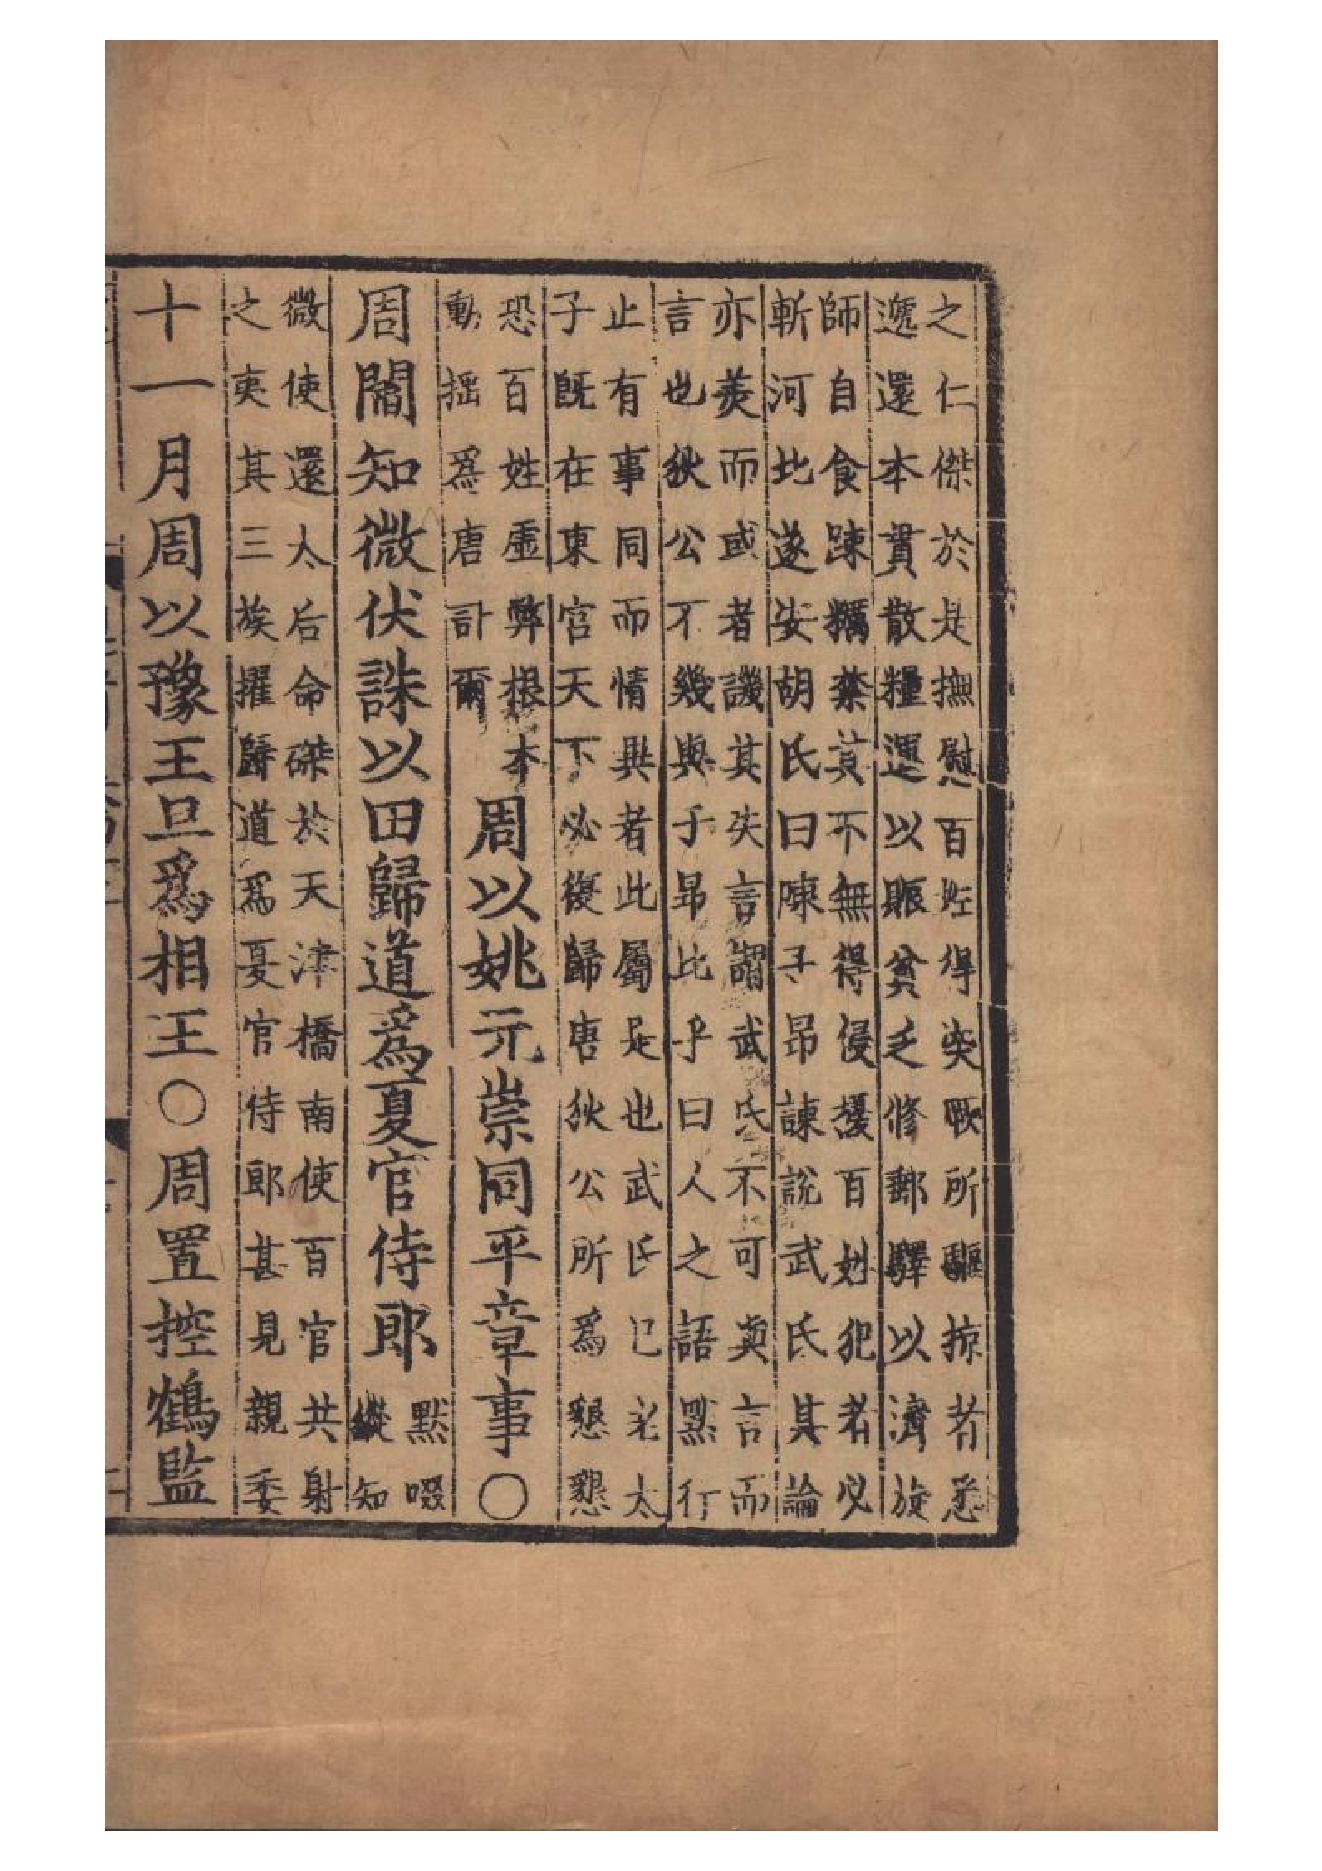 之仁傑於是撫慰百姓得突厥所驅掠者悉
遞還本貫散糧運以賑貧乏修郵驛以濟旋
師自食踈糲禁其下無得侵擾百姓犯者必
斬河北遂安胡氏曰陳子昂諫說武氏其論
亦羙而或者譏其失言謂武氏不可與言而
言也狄公不幾與子昂比乎曰人之語黙行
止有事同而情異者此屬是也武氏已老太
子旣在東宫天下必復歸唐狄公所爲懇懇
恐百姓虛弊根本
動揺爲唐計爾
周以姚元崇同平章事〇
周閻知微伏誅以田歸道爲夏官侍郎
黙啜
縱知
微使還太后命磔於天津橋南使百官共射
之夷其三族擢歸道爲夏官侍郎甚見親委
十一月周以豫王旦爲相王〇周置控鶴監